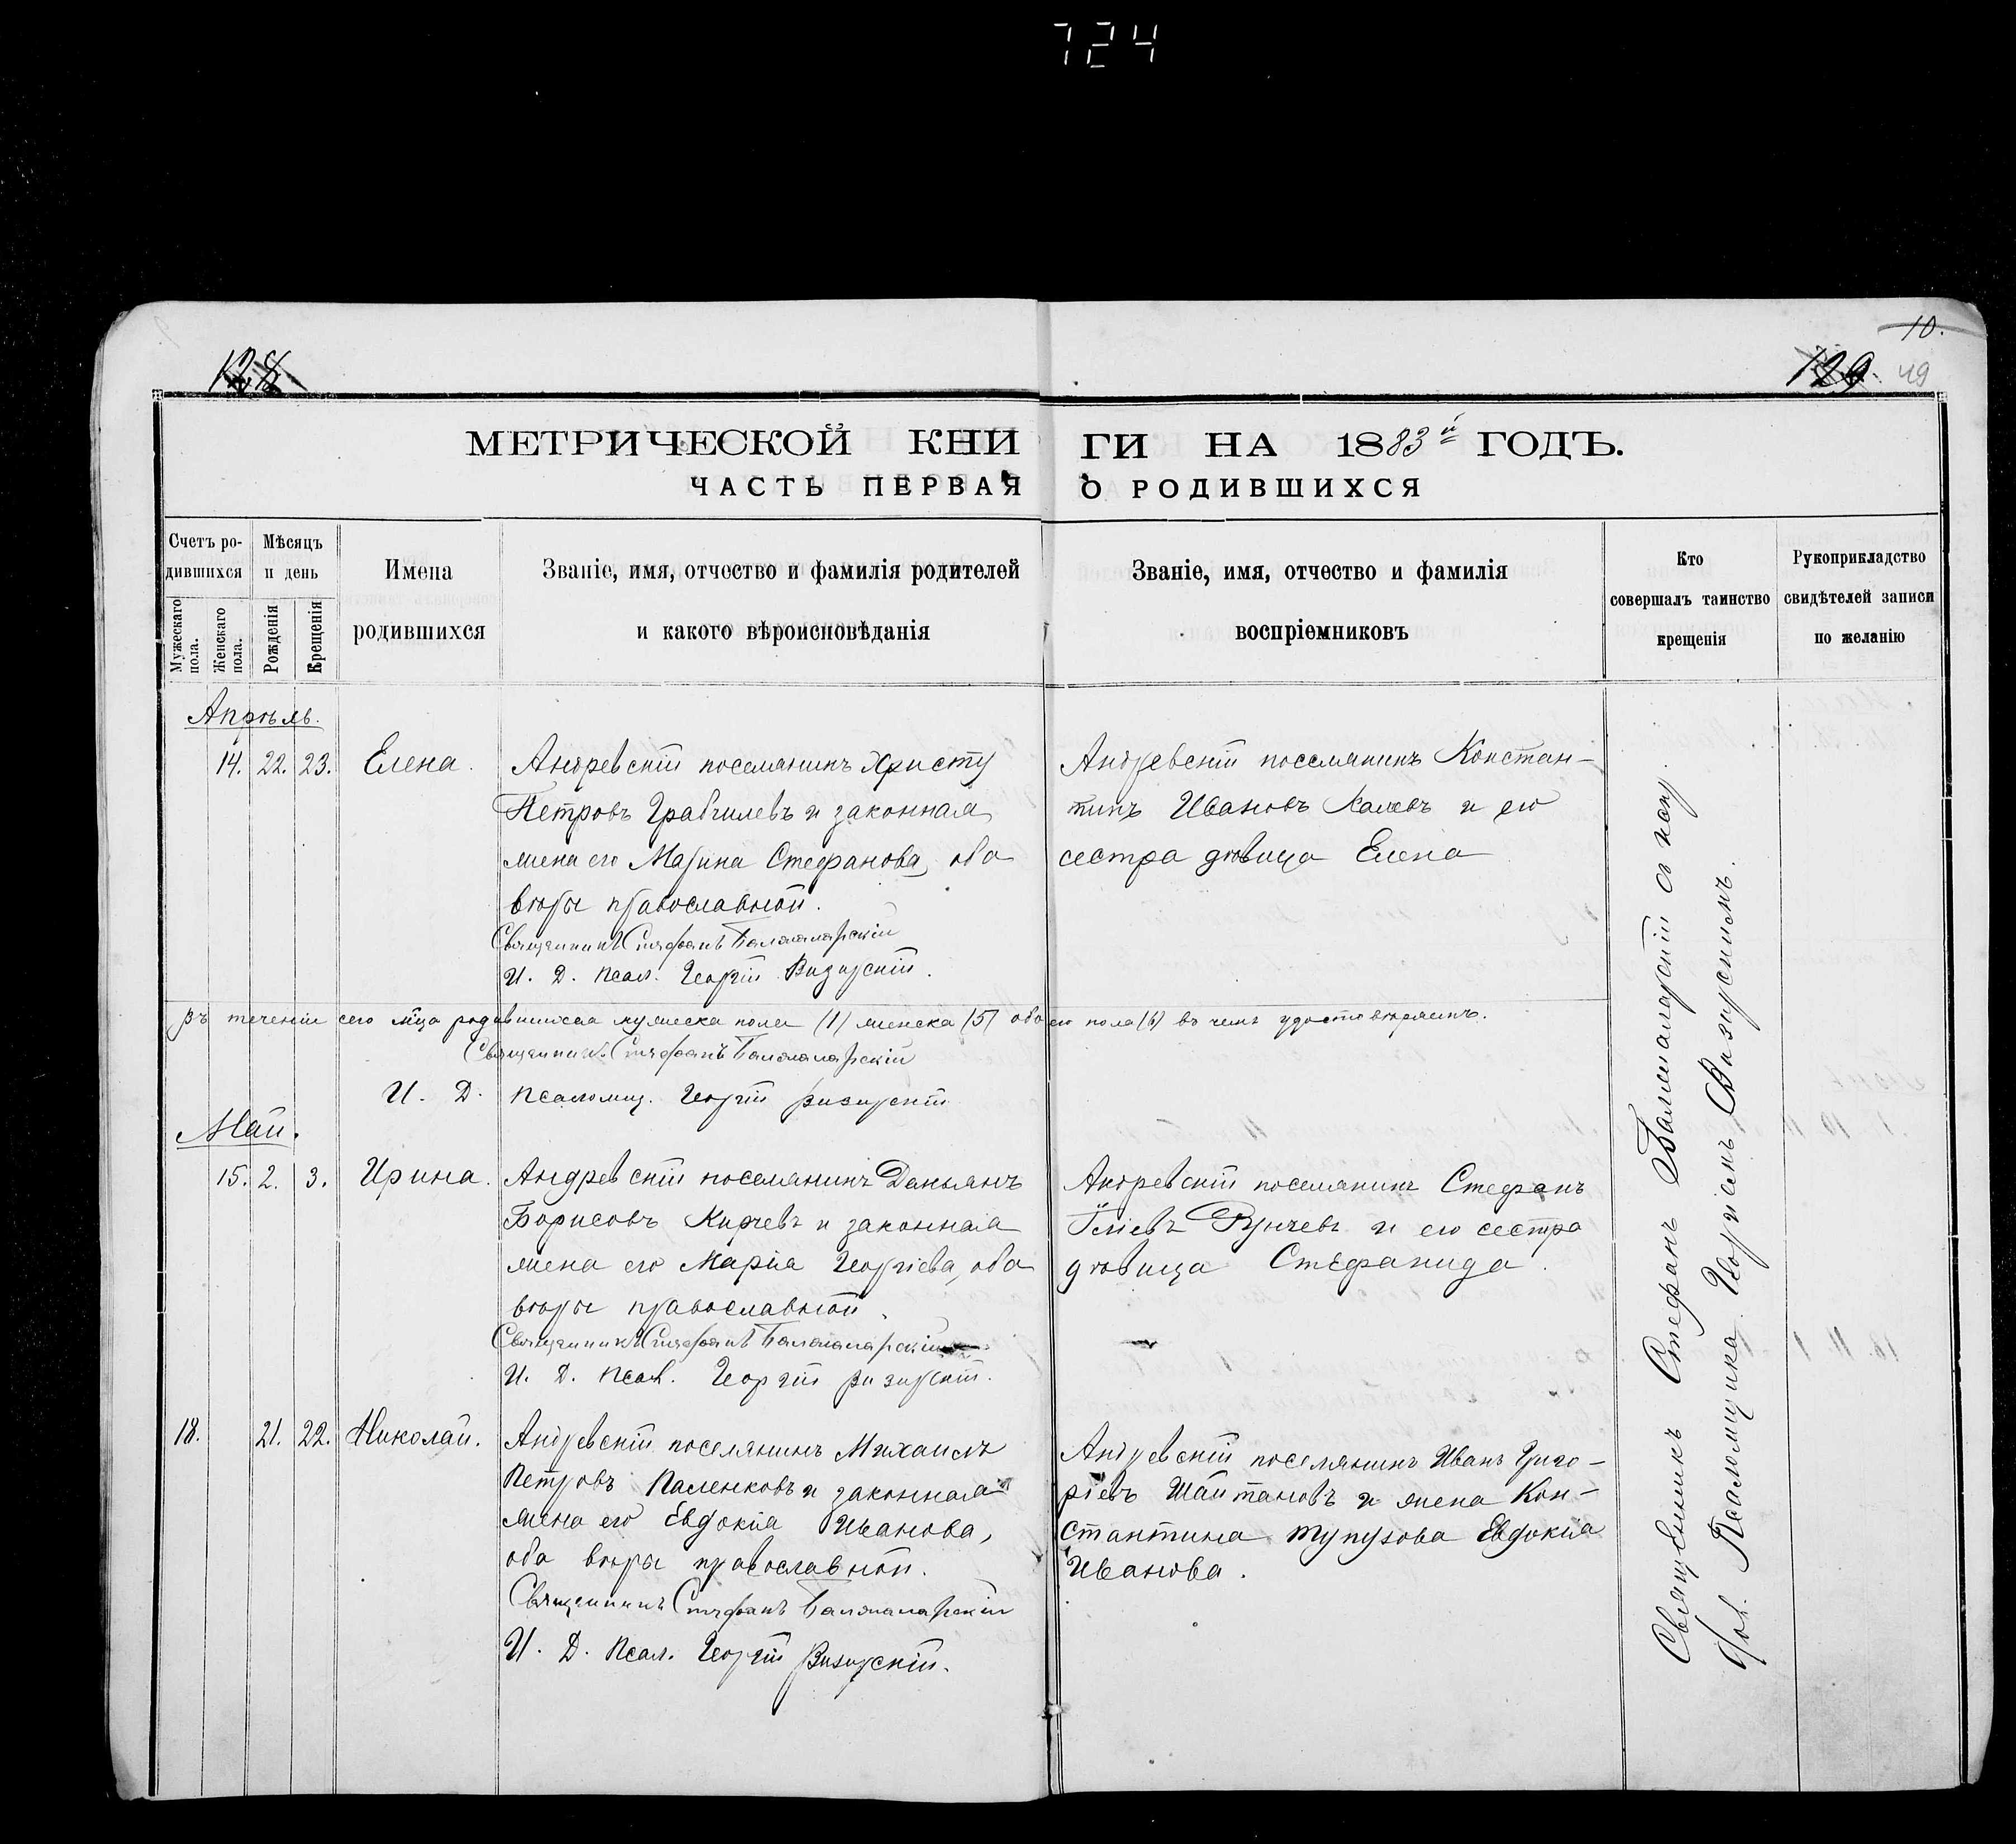 724
10.
128
129. 49
МЕТРИЧЕСКОЙ КНИ ГИ НА 1883й ГОДЪ.
ЧАСТЬ ПЕРВАЯ О РОДИВШИХСЯ
Счетъ ро-
дившихся
Мужескаго пола.
Женскаго пола.
Мѣсяцъ
и день
Рожденія
Крещенія
Имена
родившихся
Званіе, имя, отчество и фамилія родителей
и какого вѣроисповѣданія
Званіе, имя, отчество и фамилія
воспріемниковъ
Кто
совершалъ таинство
крещенія
Рукоприкладство
свидѣтелей записи
по желанію
Апрѣль.
14. 22. 23. Елена.
Андревскій поселянинъ Христу
Петровъ Грабчилевъ и законная
жена его Марина Стефанова, оба
вѣры православной.
Священникъ Стефанъ Баламаларскій
И. Д. Псал. Георгій Визирскій.
Андревскій поселянинъ Констан-
тинъ Ивановъ Калевъ и его
сестра дѣвица Елена
Въ теченіи сего мѣца родившихся мужеска пола (1) женска (5) обоего пола (6) въ чемъ удостовѣряемъ.
Священникъ Стефанъ Баламаларскій
И. Д. Псаломщ. Георгій Визирскій
Май.
15. 2. 3. Ирина.
Андревскій поселянинъ Дамьянъ
Борисовъ Кирчевъ и законная
жена его Марія Георгіева, оба
вѣры православной.
Священникъ Стефанъ Баламаларскій
И. Д. Псал. Георгій Визирскій.
Андревскій поселянинъ Стефанъ
Иліевъ Рунчевъ и его сестра
дѣвица Стефанида.
18. 21. 22. Николай.
Андревскій поселянинъ Михаилъ
Петровъ Паленковъ и законная
жена его Евдокія Иванова,
оба вѣры православной.
Священникъ Стефанъ Баламаларскій
И. Д. Псал. Георгій Визирскій.
Андревскій поселянинъ Иванъ Григо-
ріевъ Шайтановъ и жена Кон-
стантина Тупузова Евдокія
Иванова.
Священникъ Стефанъ Баламаларскій съ
Псаломщика Георгіемъ Визирскимъ.